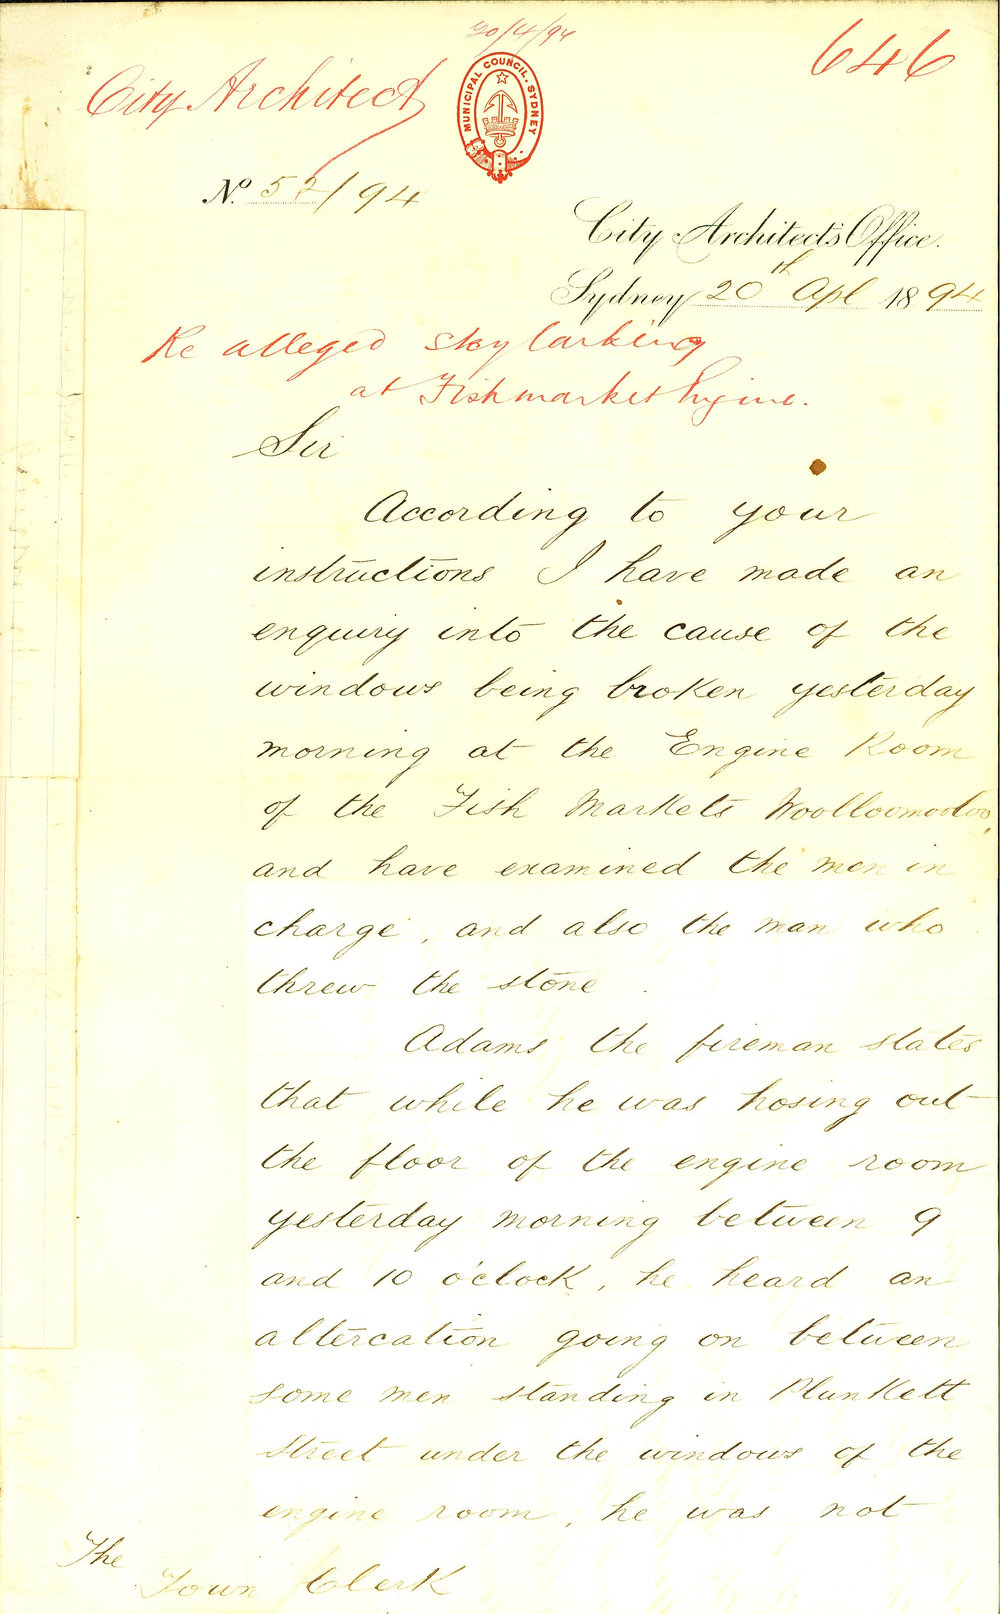 20/4/94
646
City Architect
MUNICIPAL COUNCIL. SYDNEY
No. 52/94
City Architect's Office.
Sydney 20th Apl 1894
Re alleged skylarking
at Fishmarket Engine.
Sir
According to your
instructions I have made an
enquiry into the cause of the
windows being broken yesterday
morning at the Engine Room
of the Fish Markets Woolloomooloo,
and have examined the men in
charge, and also the man who
threw the stone.
Adams the fireman states
that while he was hosing out
the floor of the engine room
yesterday morning between 9
and 10 o'clock, he heard an
altercation going on between
some men standing in Plunkett
Street under the windows of the
engine room, he was not
The
Town Clerk